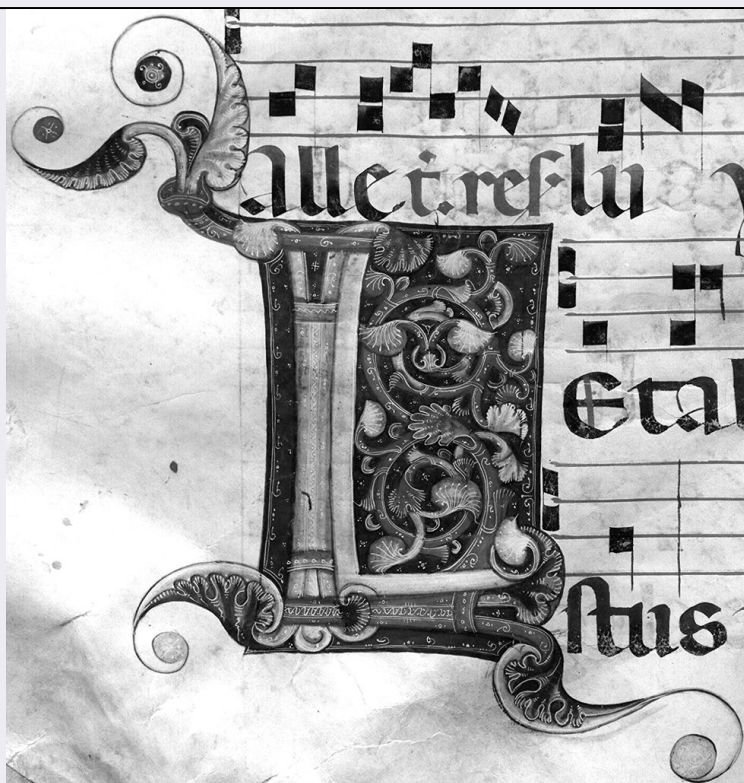 alle t̓.res. lu
LEtab
stus